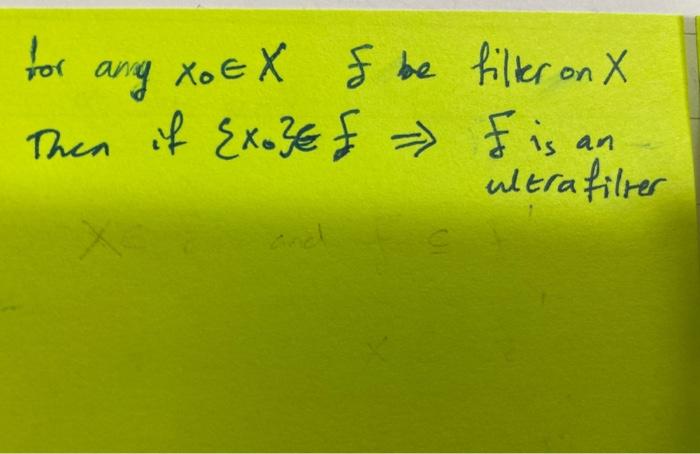 for any x₀ ∈ X f be filter on X
Then if {x₀} ∈ f ⇒ f is an
ultrafilter
and